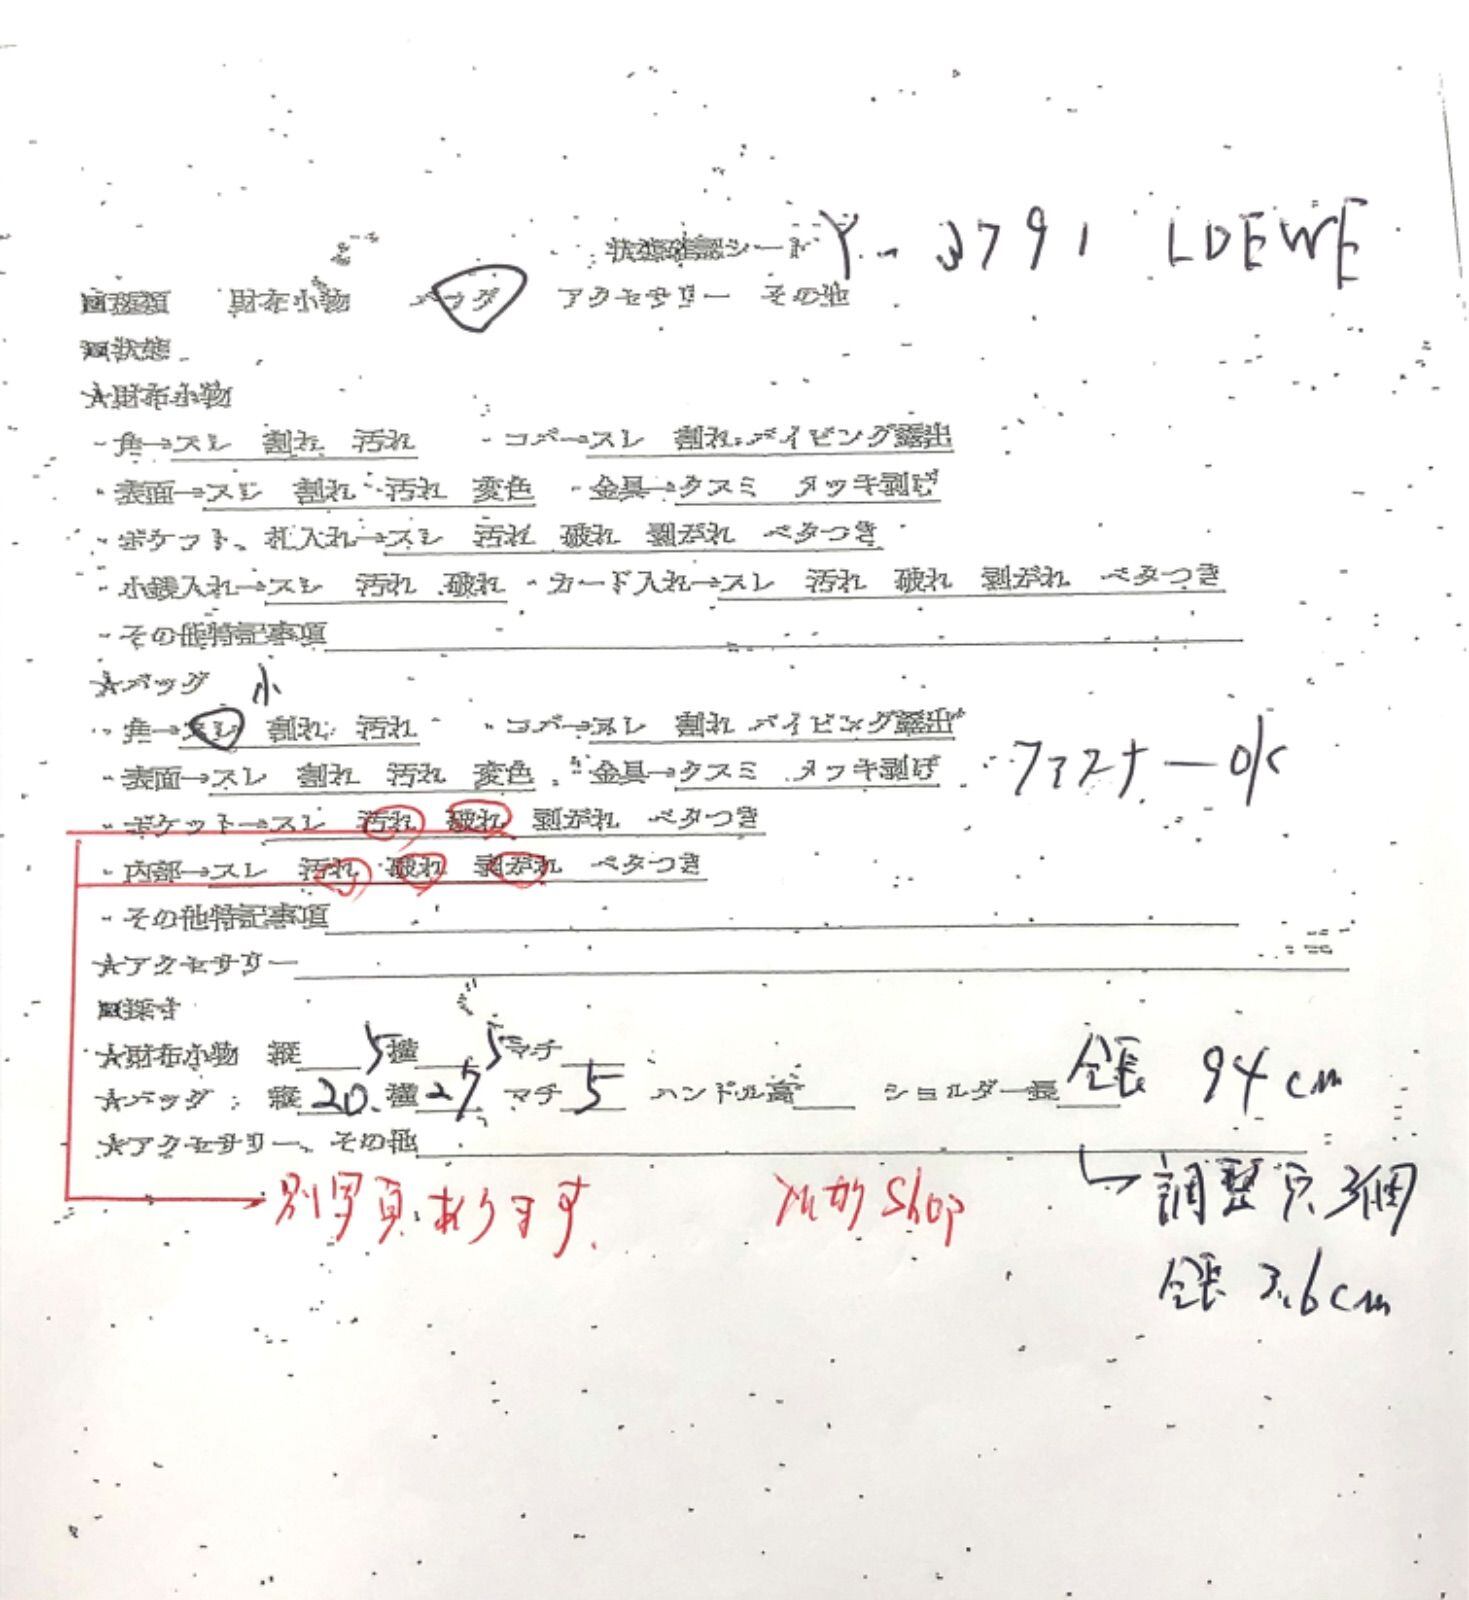 状態確認シート Y-3791 LOEWE
■種類 財布小物 バッグ アクセサリー その他
■状態
★財布小物
・角→スレ 割れ 汚れ ・コバ→スレ 割れ パイピング露出
・表面→スレ 割れ 汚れ 変色 ・金具→クスミ メッキ剥げ
・ポケット、札入れ→スレ 汚れ 破れ 剥がれ ベタつき
・小銭入れ→スレ 汚れ 破れ ・カード入れ→スレ 汚れ 破れ 剥がれ ベタつき
・その他特記事項
★バッグ 小
・角→スレ 割れ 汚れ ・コバ→スレ 割れ パイピング露出
・表面→スレ 割れ 汚れ 変色 ・金具→クスミ メッキ剥げ ファスナーOK
・ポケット→スレ 汚れ 破れ 剥がれ ベタつき
・内部→スレ 汚れ 破れ 剥がれ ベタつき
・その他特記事項
★アクセサリー
■採寸
★財布小物 縦 5 横 5 マチ
★バッグ 縦 20. 横 27 マチ 5 ハンドル高 ショルダー長 全長 94cm
★アクセサリー、その他
別写真あります. Shop 調整穴 3個
全長 3.6cm